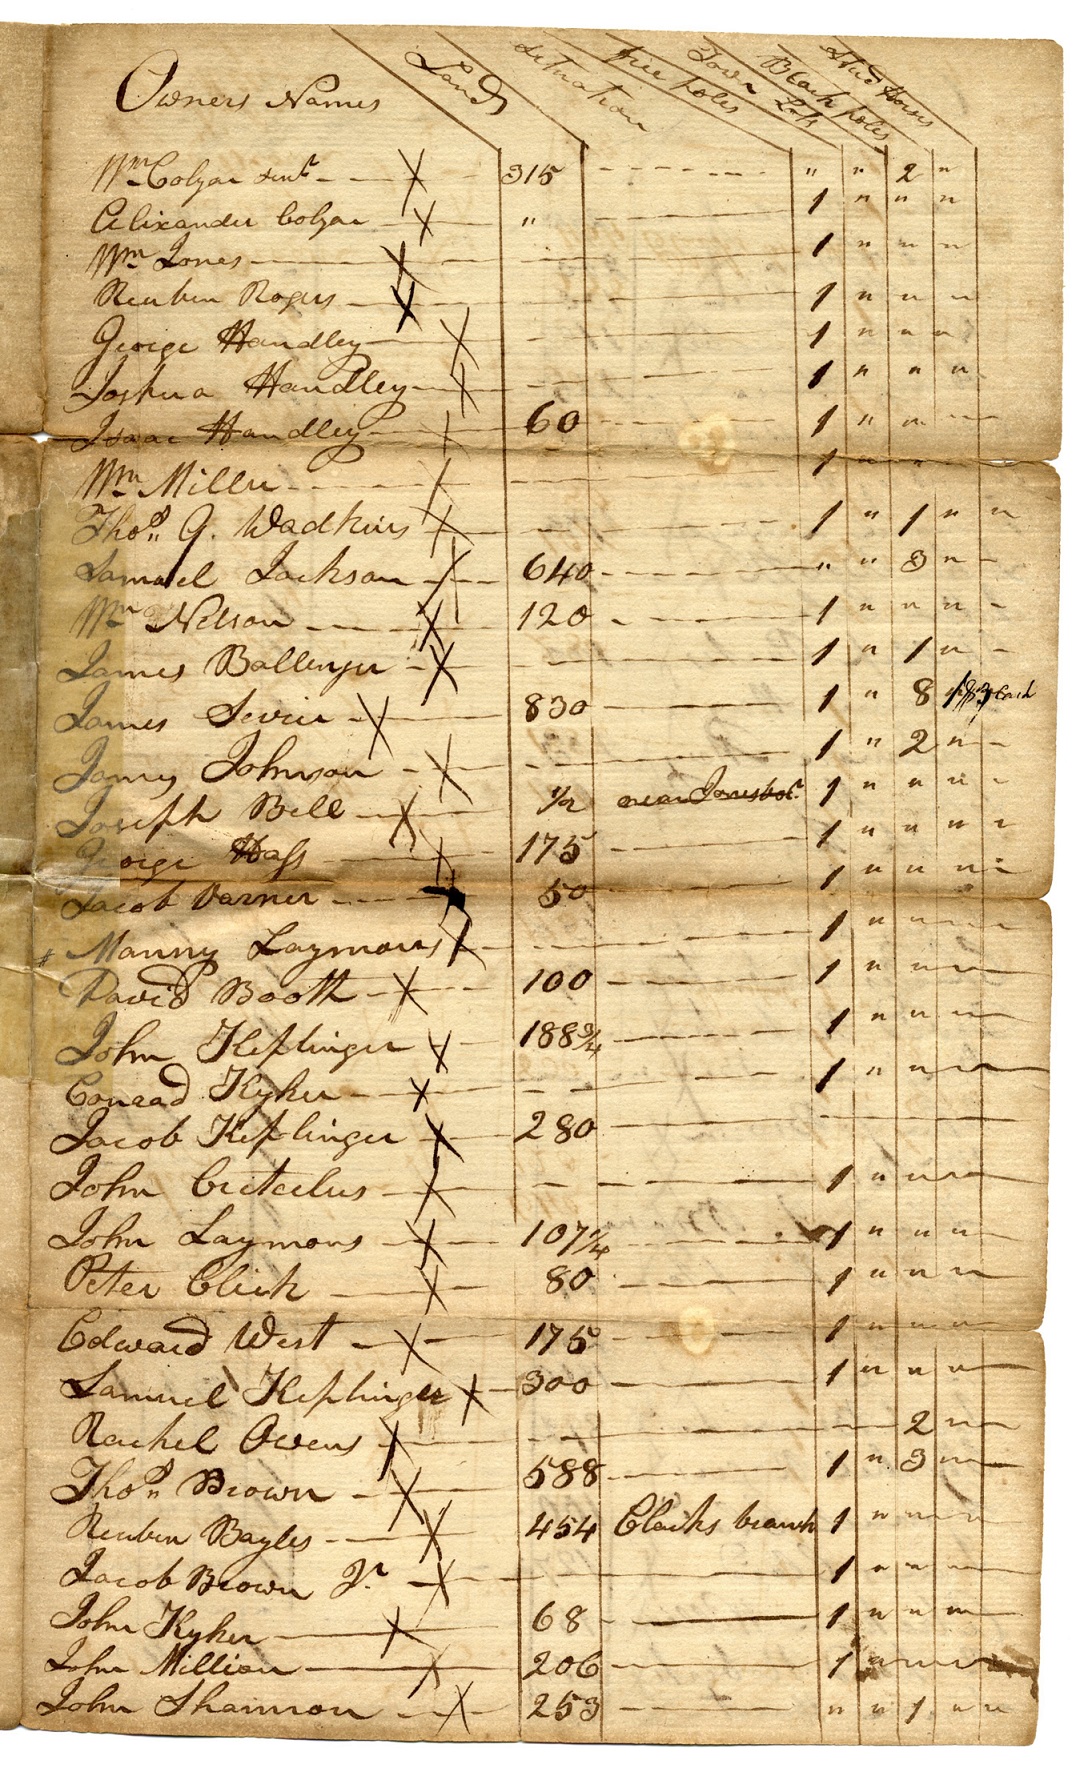 Owners Names Lands situation free poles Town Lots Black poles Stud Horses
Wm Colyar senr X 315 " " 2 "
Alixander Colyar X " 1 " " "
Wm Jones X 1 " " "
Reuben Rogers X 1 " " "
George Handley X 1 " " "
Joshua Handley X 1 " " "
Isaac Handley X 60 1 " "
Wm Miller X 1 " "
Thos G. Wadkins X 1 " 1 " "
Samuel Jackson X 640 " " 3 "
Wm Nelson X 120 1 " " "
James Ballenger X 1 " 1 "
James Sevier X 830 1 " 8
James Johnson X 1 " 2 "
Joseph Bell X 1/2 near Jonesboro 1 " " "
George Hass X 175 1 " " " "
Jacob Varner 50 1 " " " "
Manny Laymons X 1 " " "
David Booth X 100 1 " " "
John Keplinger X 188 3/4 1 " " "
Conrad Kyker X 1 " " "
Jacob Keplinger X 280
John Critselus X 1 " " "
John Laymons X 107 1/4 1 " " "
Peter Click X 80 1 " " "
Edward West X 175 1 " " "
Samuel Keplinger X 300 1 " " "
Rachel Owens X 2 "
Thos Brown X 588 1 " 3 "
Reuben Bayles X 454 Clarks branch 1 " " "
Jacob Brown Jr. X 1 " " "
John Kyker X 68 1 " " "
John Million X 206 1 " "
John Shannon X 253 " " 1 " "